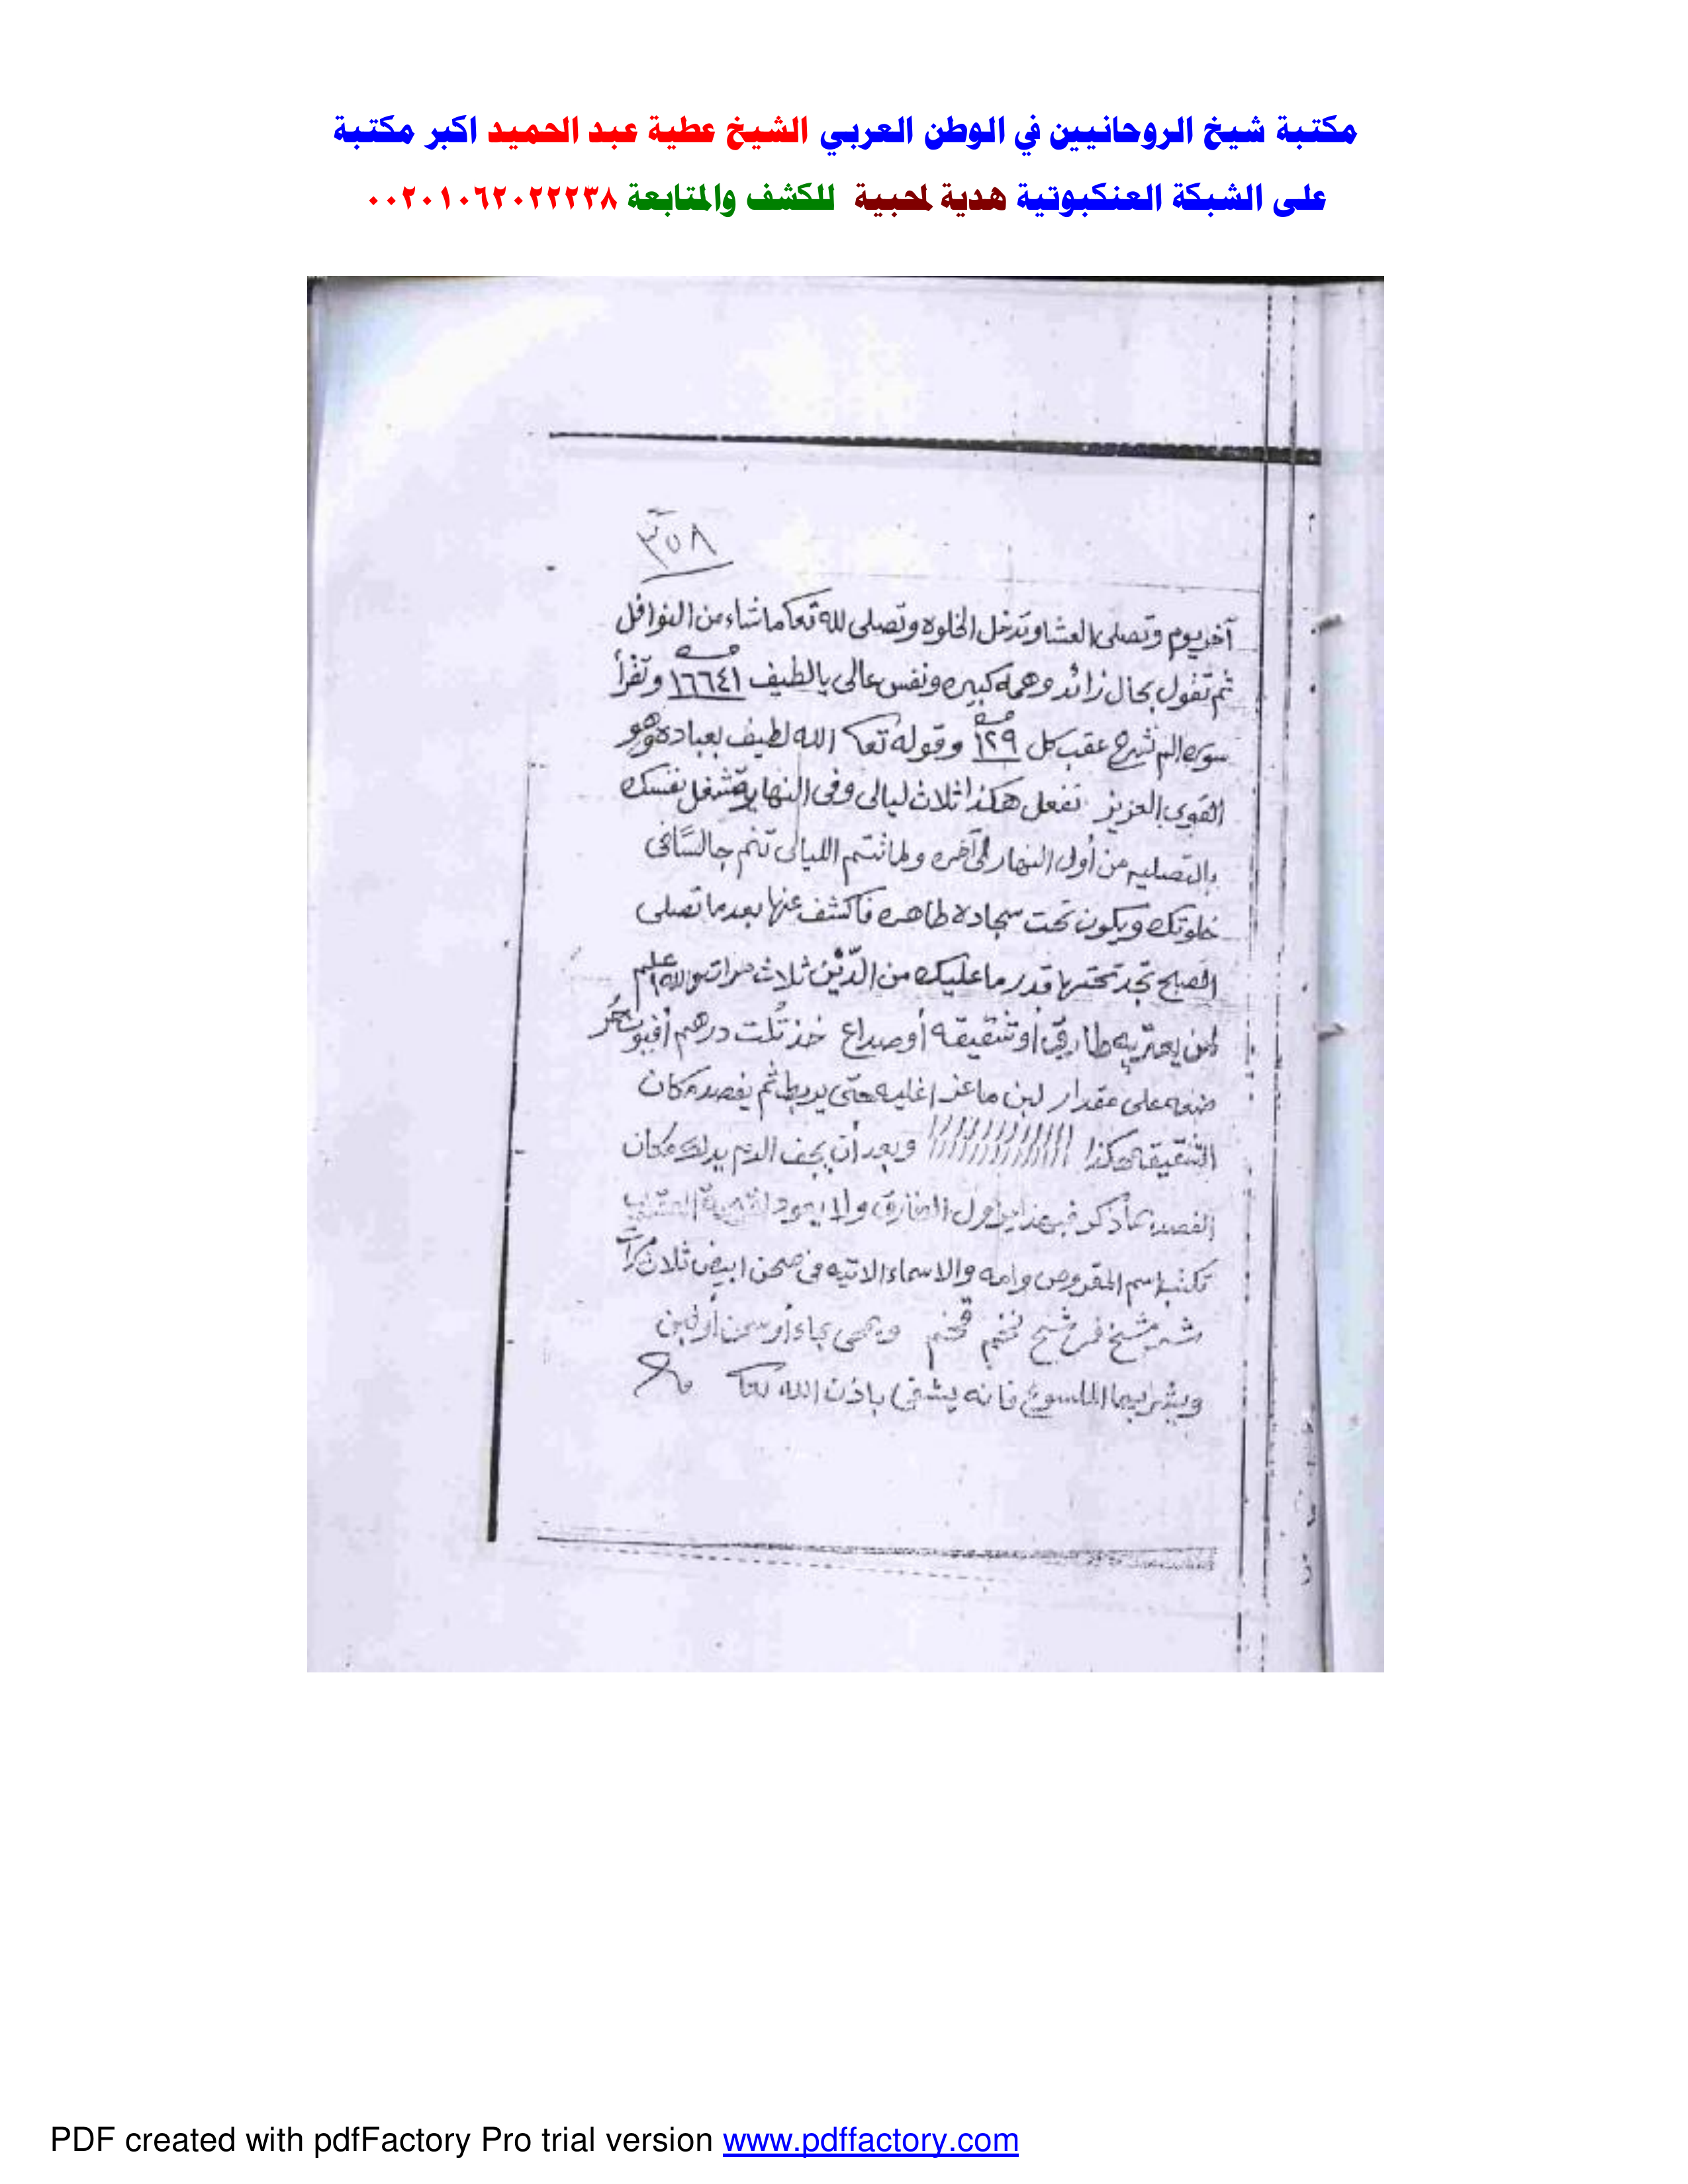 مكتبة شيخ الروحانيين في الوطن العربي الشيخ عطية عبد الحميد اكبر مكتبة
على الشبكة العنكبوتية هدية لمحبية للكشف والمتابعة ٠٠٢٠١٠٦٢٠٢٢٢٣٨
٣٥٨
آخر يوم وتصلى العشا وتدخل الخلوه وتصلى لله تعا ما شاء من النوافل
ثم تقول بحال زائد وهمه كبيره ونفس عالى يالطيف ١٦٦٤١ وتقرأ
سوره الم نشرح عقب كل ١٢٩ وقوله تعا الله لطيف بعباده وهو
القوى العزيز تفعل هكذا ثلاث ليالى وفى النهار تشغل نفسك
من أول النهار الى آخره ولما تتم الليالى تنم جالسًا فى
خلوتك ويكون تحت سجاده طاهره فاكشف عنها بعد ما تصلى
الصبح تجد تحتها قدر ما عليك من الدّين ثلاث مرات والله اعلم
لمن يعتريه أو شقيقه أو صداع خذ ثلث درهم أفيون
ضعه على مقدار لبن ماعز اغليه حتى يربط ثم يفصد مكان
الشقيقه هكذا وبعد أن يجف الدم يدلك مكان
الفصد بما ذكر ولا يعود
تكتب اسم المقروص وامه والاسماء الاتيه فى صحن ابيض ثلاث مرات
ويمحى بماء أو سمن أو لبن
ويشربها الملسوع فانه يشفى باذن الله تعا
PDF created with pdfFactory Pro trial version www.pdffactory.com